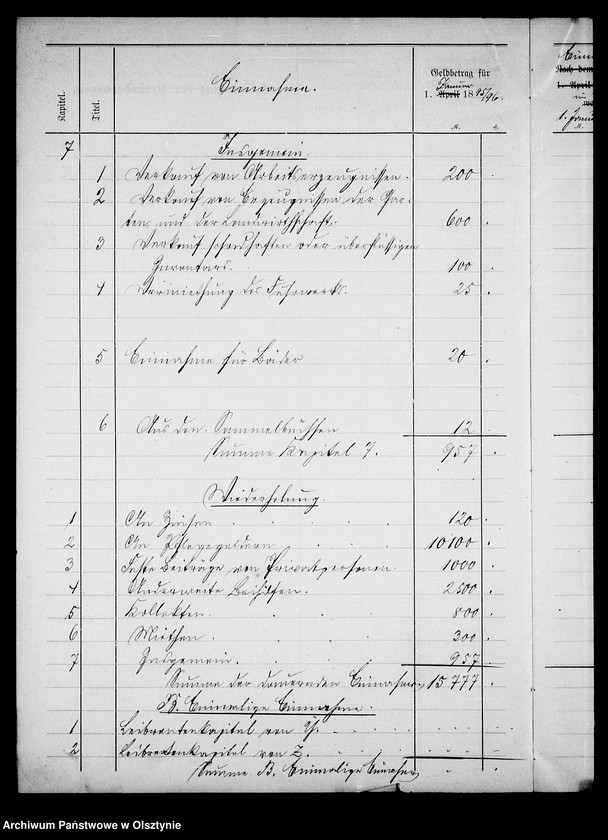 Kapitel.
Titel.
Einnahme.
Geldbetrag für
Januar
1. April 1895/96.
M.
7 Insgemein.
1 Verkauf von Arbeitserzeugnissen. 200
2 Verkauf von Erzeugnissen der Gar-
ten und der Landwirthschaft. 600
3 Verkauf schadhaften oder überflüssigen
Inventars. 100
4 Vermiethung des Fuhrwerks. 25
5 Einnahme für Bäder 20
6 Aus den Sammelbüchsen 12
Summe Kapitel 7. 957
Wiederholung.
1 An Zinsen 120
2 An Pflegegeldern 10100
3 Feste Beiträge von Privatpersonen. 1000
4 Anderweite Beihilfen. 2500
5 Kollekten. 800
6 Miethen. 300
7 Insgemein. 957
Summe der dauernden Einnahmen 15777
B. Einmalige Einnahme.
1 Leibrentenkapital von Y.
2 Leibrentenkapital von Z.
Summe B. Einmalige Einnahme
Nach dem
1. April
1. Janu
M.
Archiwum Państwowe w Olsztynie